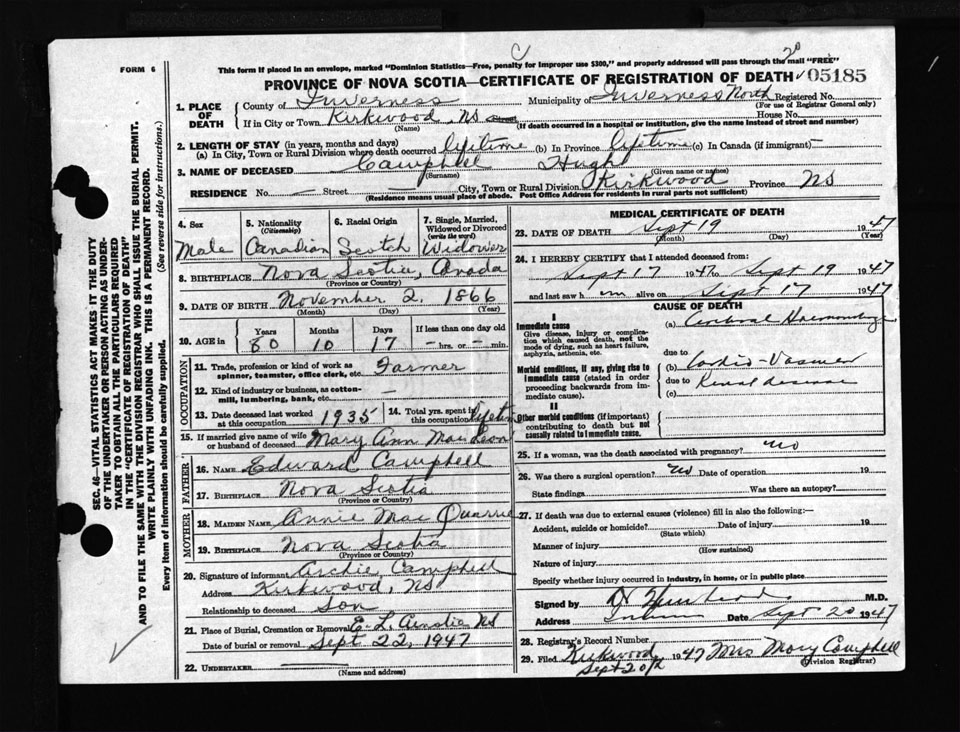 FORM 6
This form if placed in an envelope, marked "Dominion Statistics—Free, penalty for improper use $300," and properly addressed will pass through the mail "FREE"
20
PROVINCE OF NOVA SCOTIA—CERTIFICATE OF REGISTRATION OF DEATH 05185
1. PLACE OF DEATH
County of Inverness Municipality of Inverness North Registered No.
(For use of Registrar General only)
If in City or Town Kirkwood, NS Street House No.
(Name) (If death occurred in a hospital or institution, give the name instead of street and number)
2. LENGTH OF STAY (in years, months and days)
(a) In City, Town or Rural Division where death occurred lifetime (b) In Province lifetime (c) In Canada (if immigrant) —
3. NAME OF DECEASED Campbell Hugh
(Surname) (Given name or names)
RESIDENCE No. — Street — City, Town or Rural Division Kirkwood Province NS
(Residence means usual place of abode. Post Office Address for residents in rural parts not sufficient)
4. Sex Male
5. Nationality (Citizenship) Canadian
6. Racial Origin Scotch
7. Single, Married, Widowed or Divorced (write the word) Widower
8. BIRTHPLACE Nova Scotia, Canada
(Province or Country)
9. DATE OF BIRTH November 2, 1866
(Month) (Day) (Year)
10. AGE in Years Months Days If less than one day old
80 10 17 — hrs. or — min.
OCCUPATION
11. Trade, profession or kind of work as spinner, teamster, office clerk, etc. Farmer
12. Kind of industry or business, as cotton-mill, lumbering, bank, etc. —
13. Date deceased last worked at this occupation 1935
14. Total yrs. spent in this occupation
15. If married give name of wife or husband of deceased Mary Ann
FATHER
16. NAME Edward Campbell
17. BIRTHPLACE Nova Scotia
(Province or Country)
MOTHER
18. MAIDEN NAME Annie Mac Quarrie
19. BIRTHPLACE Nova Scotia
(Province or Country)
20. Signature of informant Archie Campbell
Address Kirkwood, NS
Relationship to deceased Son
21. Place of Burial, Cremation or Removal E. L. Ainslie NS
Date of burial or removal Sept 22, 1947
22. UNDERTAKER
(Name and address)
MEDICAL CERTIFICATE OF DEATH
23. DATE OF DEATH Sept 19 1947
(Month) (Day) (Year)
24. I HEREBY CERTIFY that I attended deceased from:
Sept 17 1947 to Sept 19 1947
and last saw h im alive on Sept 17 1947
CAUSE OF DEATH
I
Immediate cause
Give disease, injury or complication which caused death, not the mode of dying, such as heart failure, asphyxia, asthenia, etc.
(a) Cerebral Haemorrhage
due to
Morbid conditions, if any, giving rise to immediate cause (stated in order proceeding backwards from immediate cause).
(b) Cardio-Vascular
due to Renal disease
(c)
II
Other morbid conditions (if important) contributing to death but not causally related to immediate cause.
25. If a woman, was the death associated with pregnancy? no
26. Was there a surgical operation? no Date of operation 19
State findings Was there an autopsy?
27. If death was due to external causes (violence) fill in also the following:—
Accident, suicide or homicide? Date of injury 19
(State which)
Manner of injury
(How sustained)
Nature of injury
Specify whether injury occurred in industry, in home, or in public place
Signed by M.D.
Address Date Sept 20 1947
28. Registrar's Record Number
29. Filed Kirkwood 1947 Mrs Mary Campbell
Sept 20th (Division Registrar)
SEC. 46—VITAL STATISTICS ACT MAKES IT THE DUTY
OF THE UNDERTAKER OR PERSON ACTING AS UNDER-
TAKER TO OBTAIN ALL THE PARTICULARS REQUIRED
IN THE "CERTIFICATE OF REGISTRATION OF DEATH"
AND TO FILE THE SAME WITH THE DIVISION REGISTRAR WHO SHALL ISSUE THE BURIAL PERMIT.
WRITE PLAINLY WITH UNFADING INK. THIS IS A PERMANENT RECORD.
Every item of information should be carefully supplied. (See reverse side for instructions.)